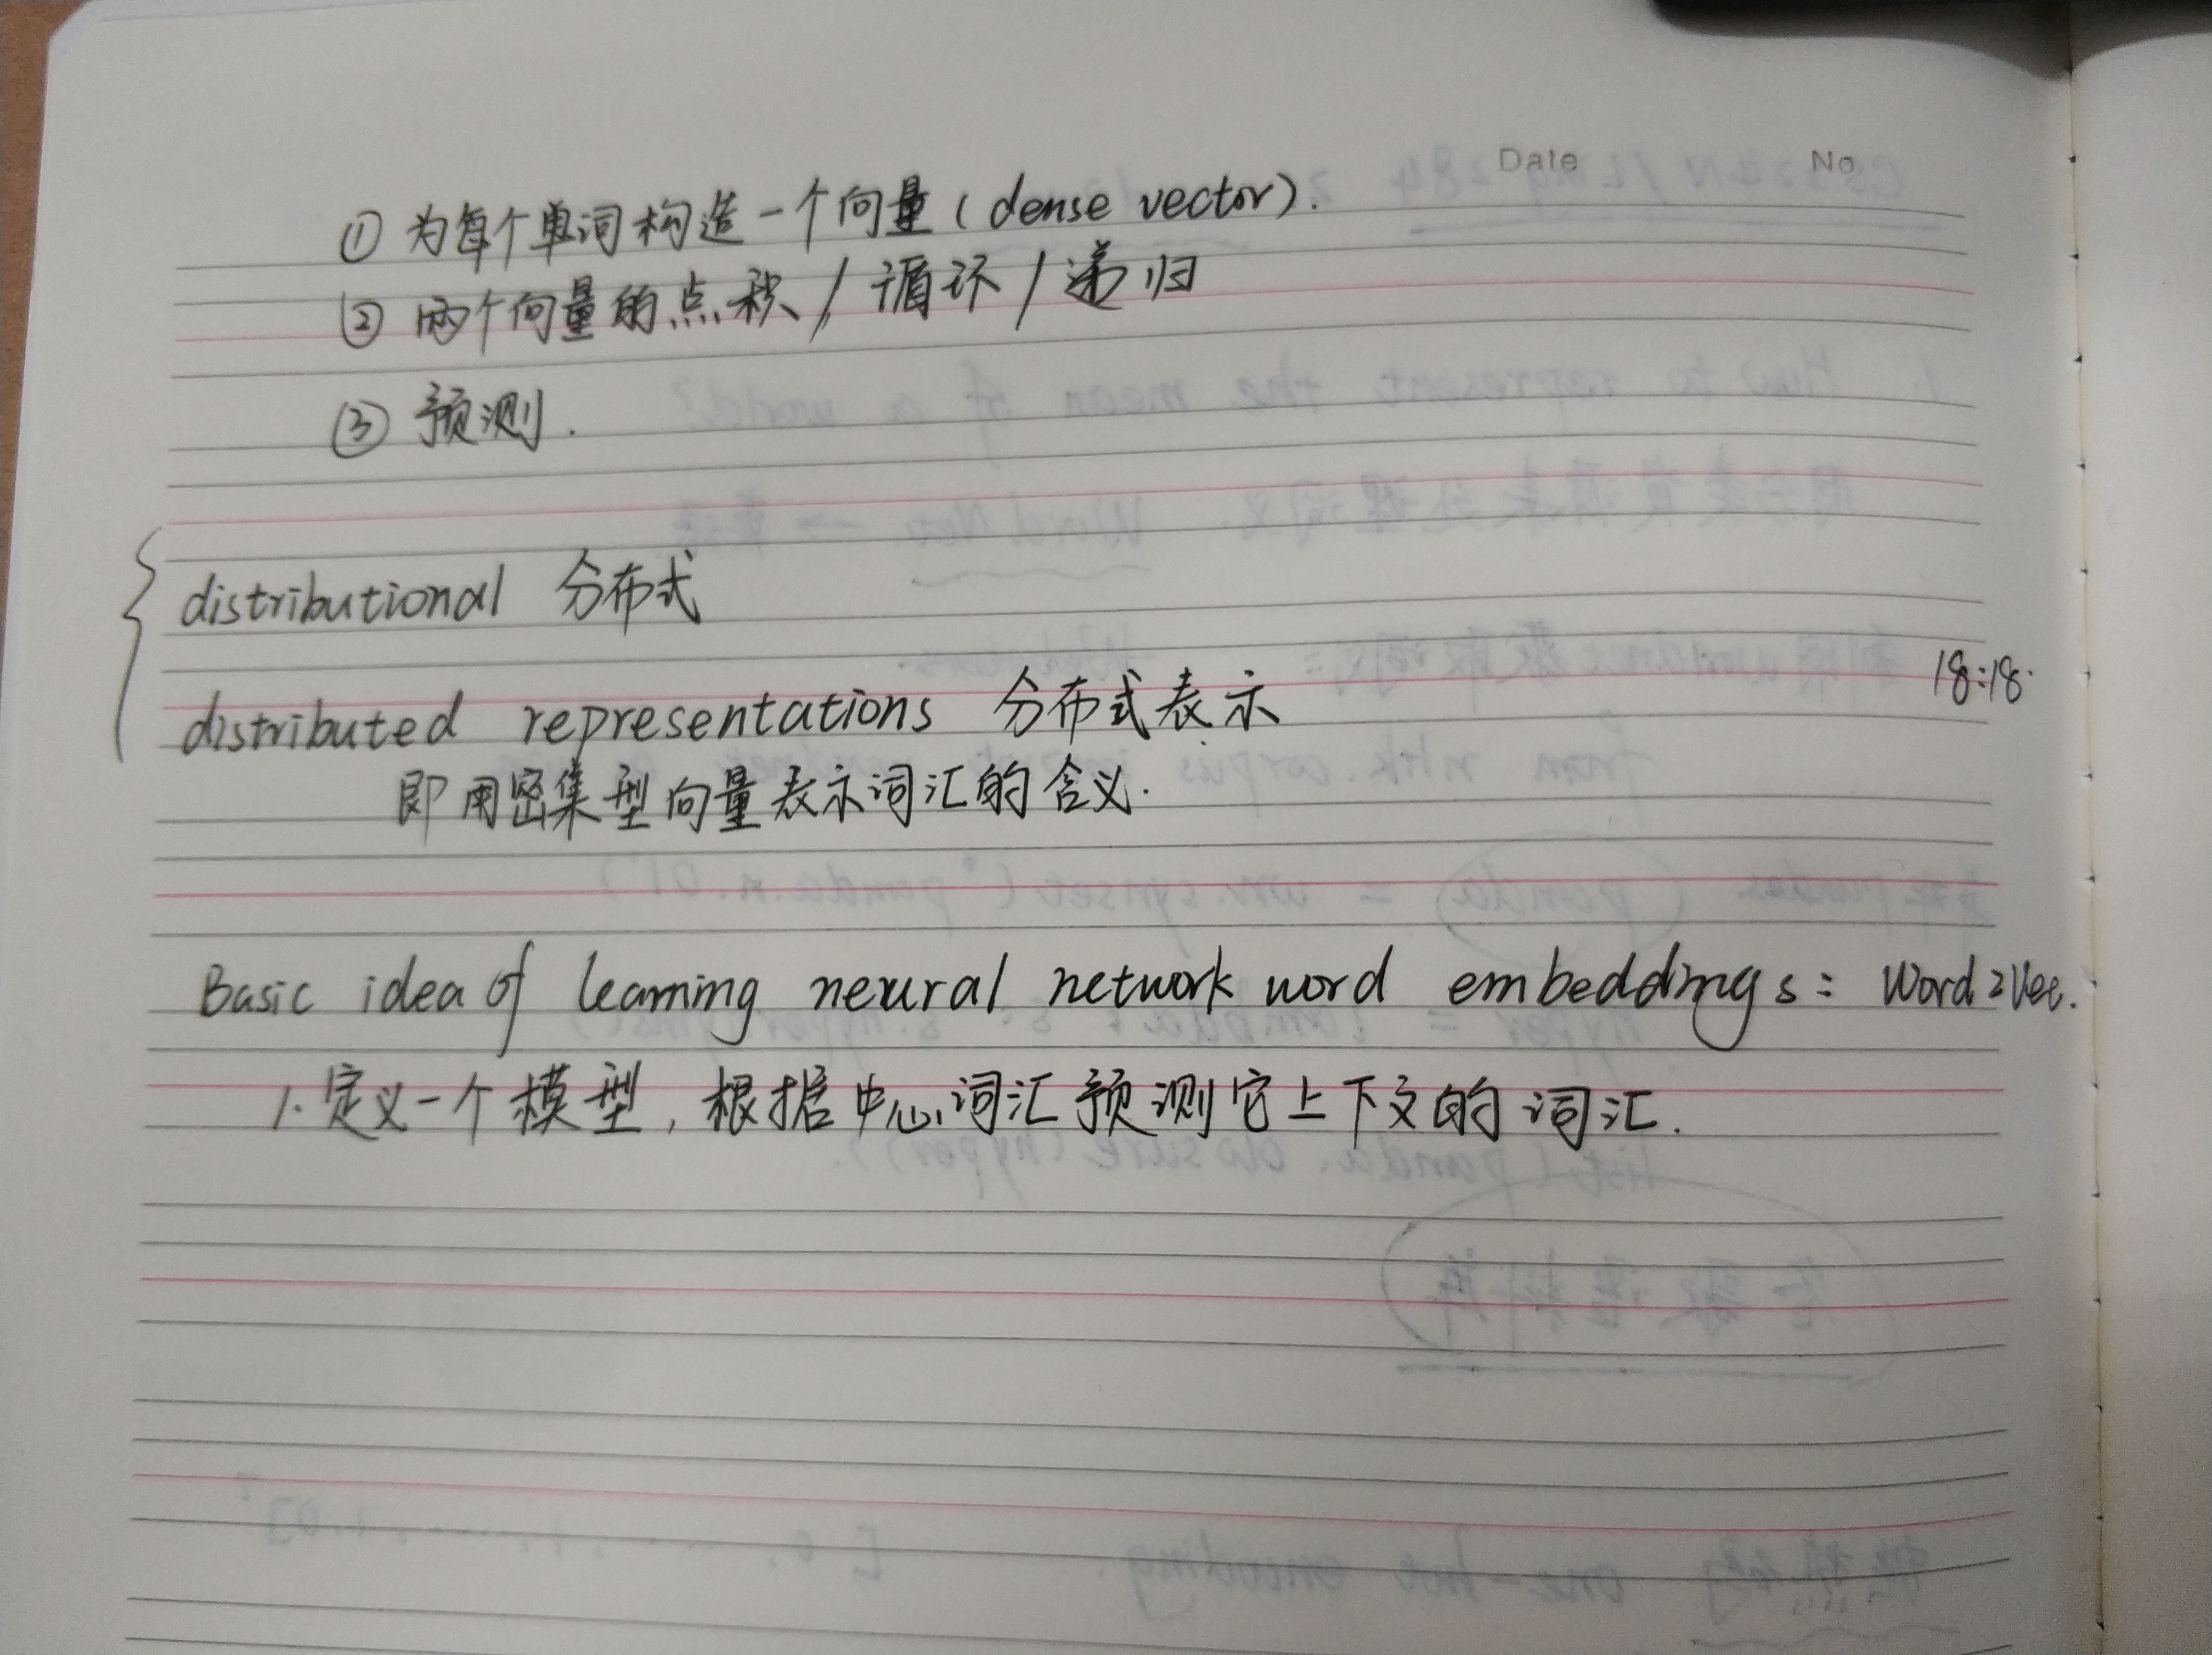 Date No
① 为每个单词构造一个向量 ( dense vector ).
② 两个向量的点积 / 循环 / 递归
③ 预测.
distributional 分布式
18:18.
distributed representations 分布式表示
即用密集型向量表示词汇的含义.
Basic idea of learning neural network word embeddings: Word2Vec.
1. 定义一个模型, 根据中心词汇预测它上下文的词汇.